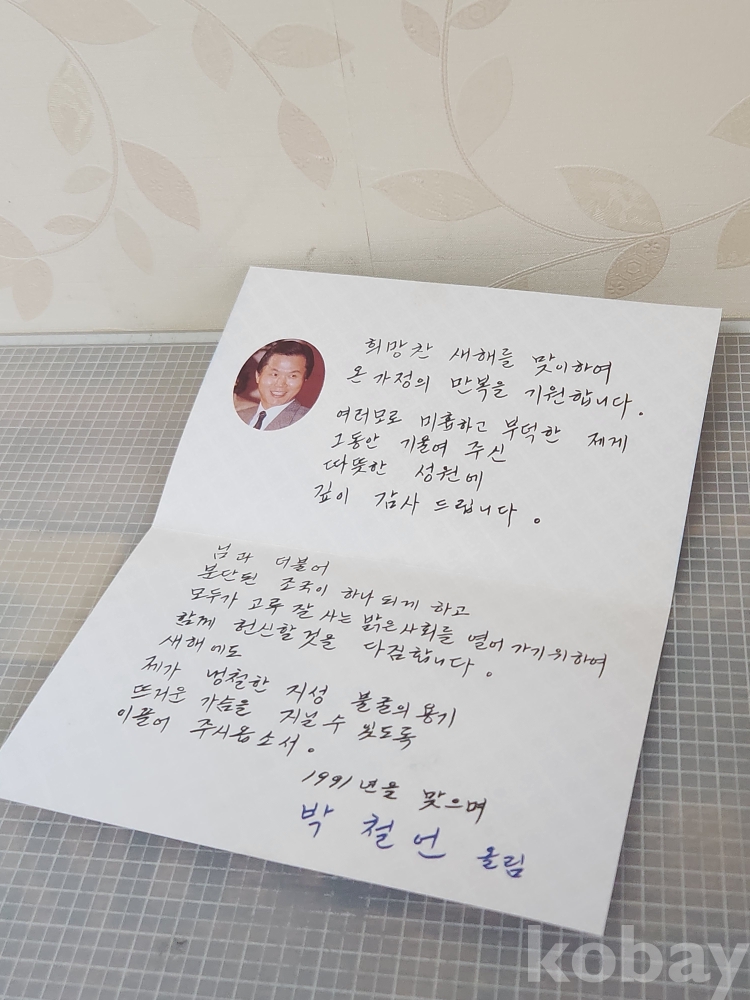 희망찬 새해를 맞이하여
온 가정의 만복을 기원합니다.
여러모로 미흡하고 부덕한 제게
그동안 기울여 주신
따뜻한 성원에
깊이 감사 드립니다.
님과 더불어
분단된 조국이 하나 되게 하고
모두가 고루 잘 사는 밝은사회를 열어 가기위하여
함께 헌신할것을 다짐합니다.
새해에도
제가 냉철한 지성 불굴의 용기
뜨거운 가슴을 지닐 수 있도록
이끌어 주시옵소서.
1991년을 맞으며
박철언 올림
kobay